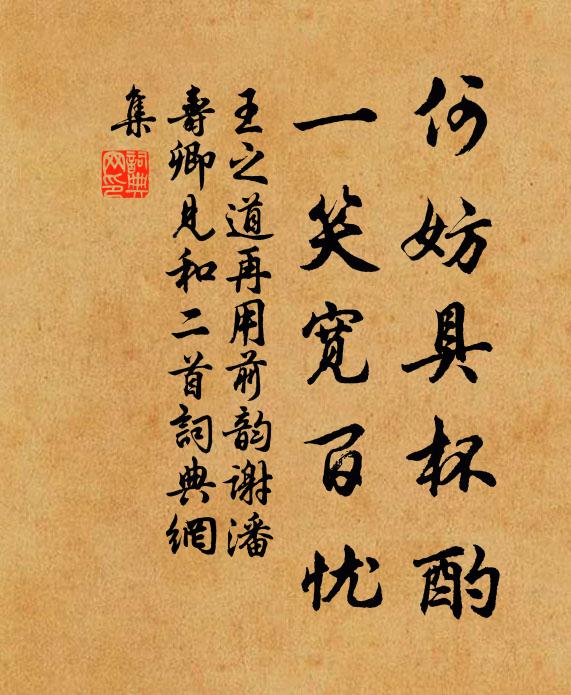 何妨具杯酌
一笑寬百忧
王之道再用前韵谢潘
壽卿見和二首詞典網
集
詞典网印